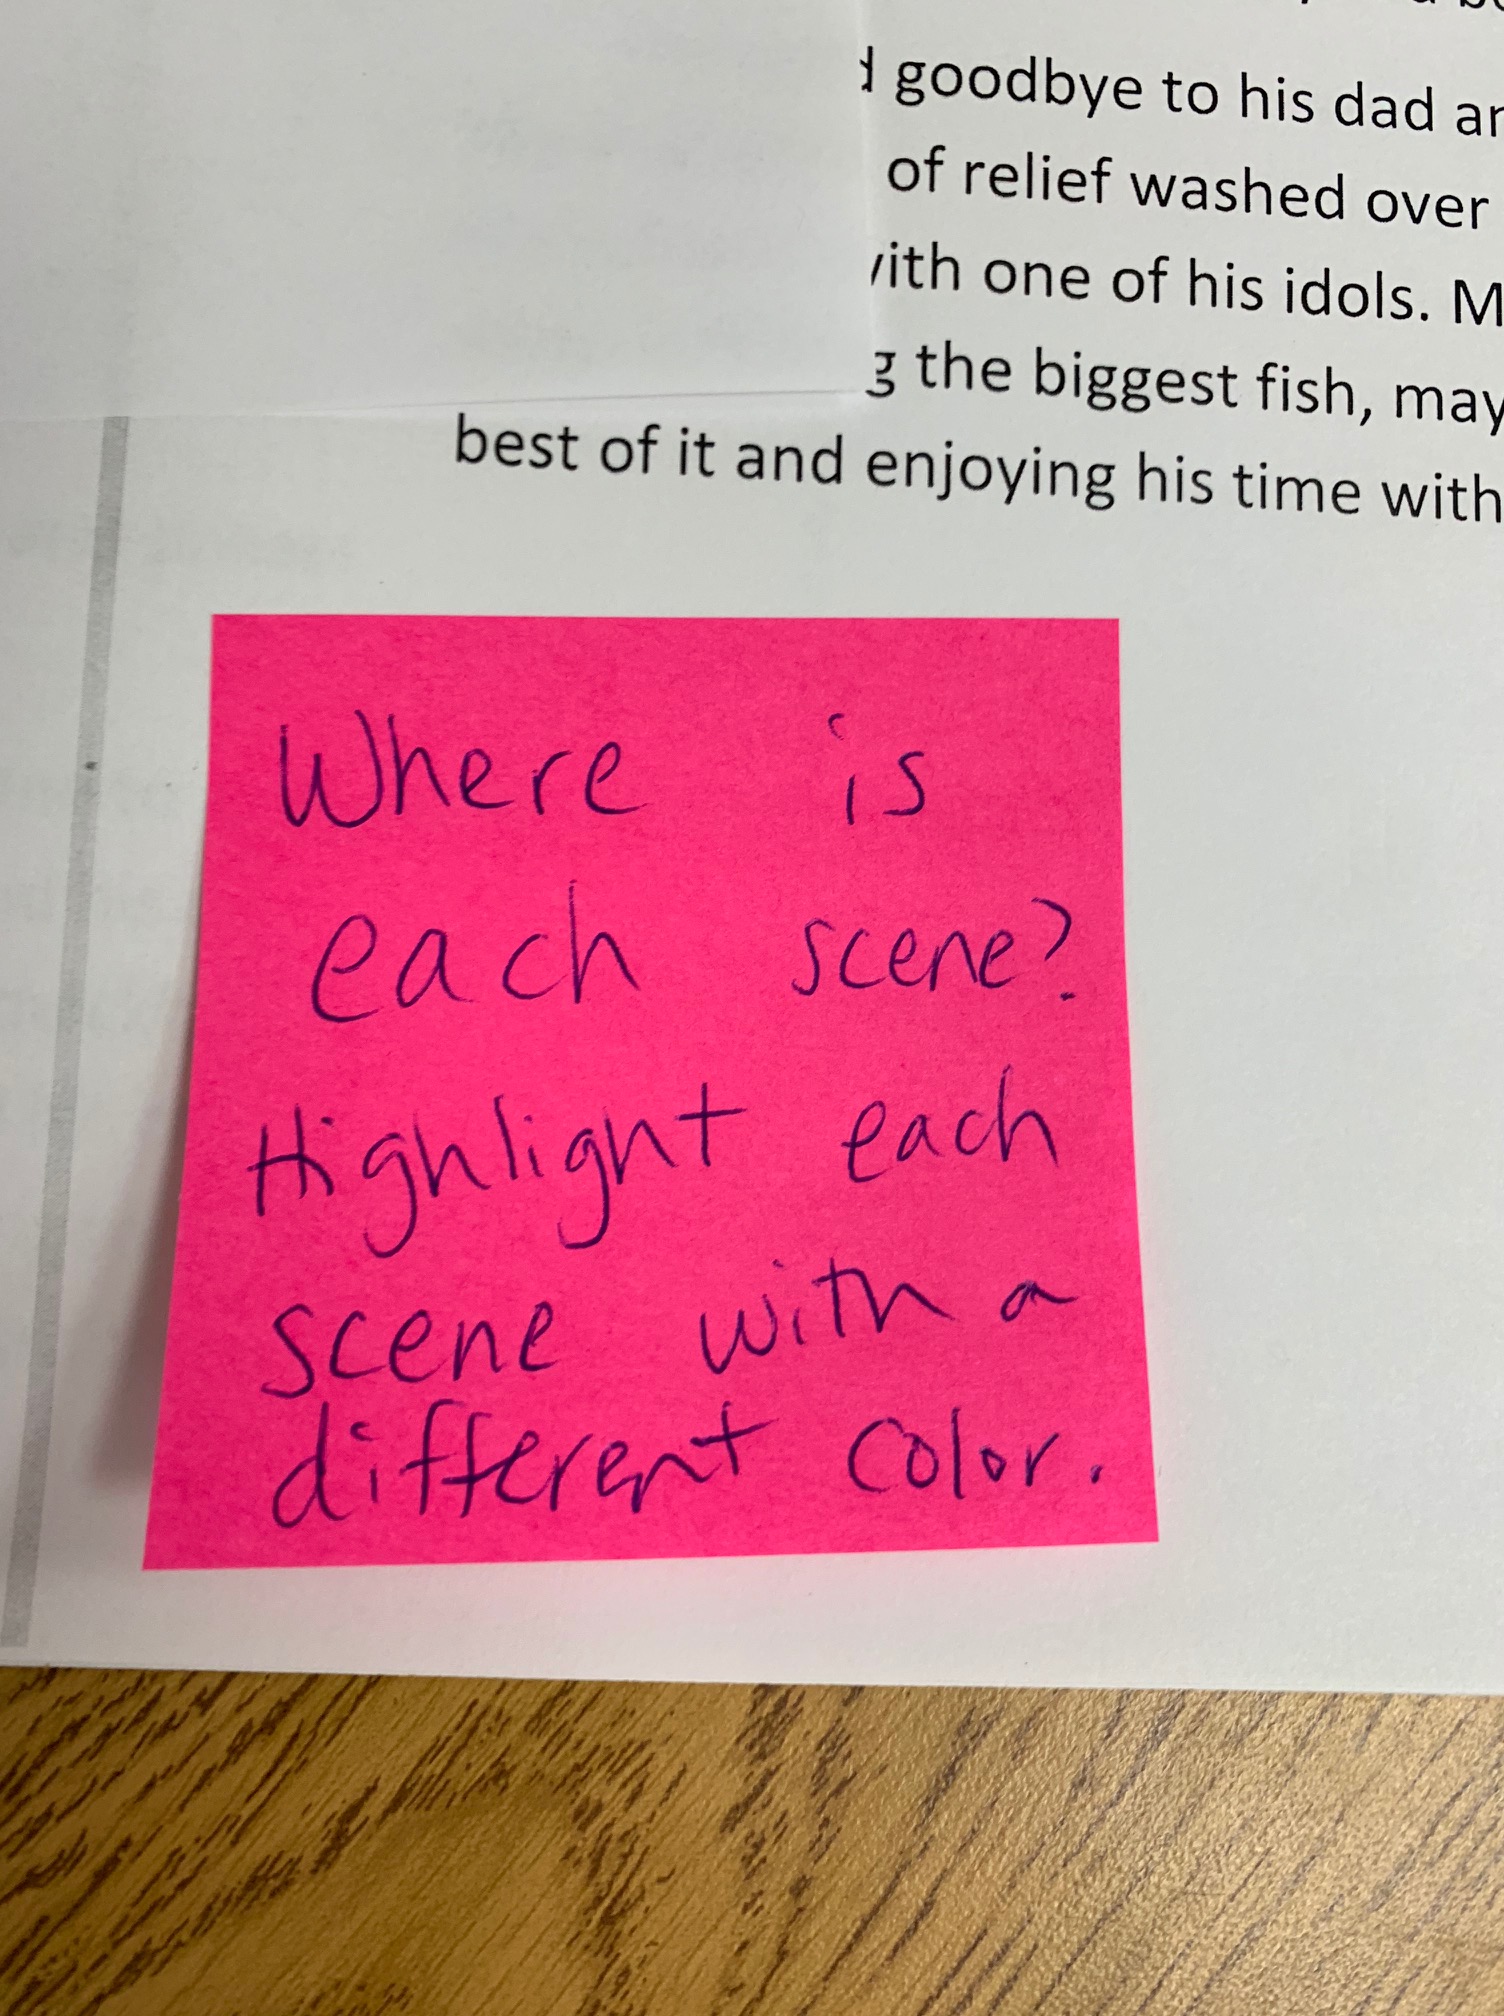 goodbye to his dad
of relief washed over
one of his idols.
the biggest fish,
best of it and enjoying his time with
Where is
each scene?
Highlight each
scene with a
different color.